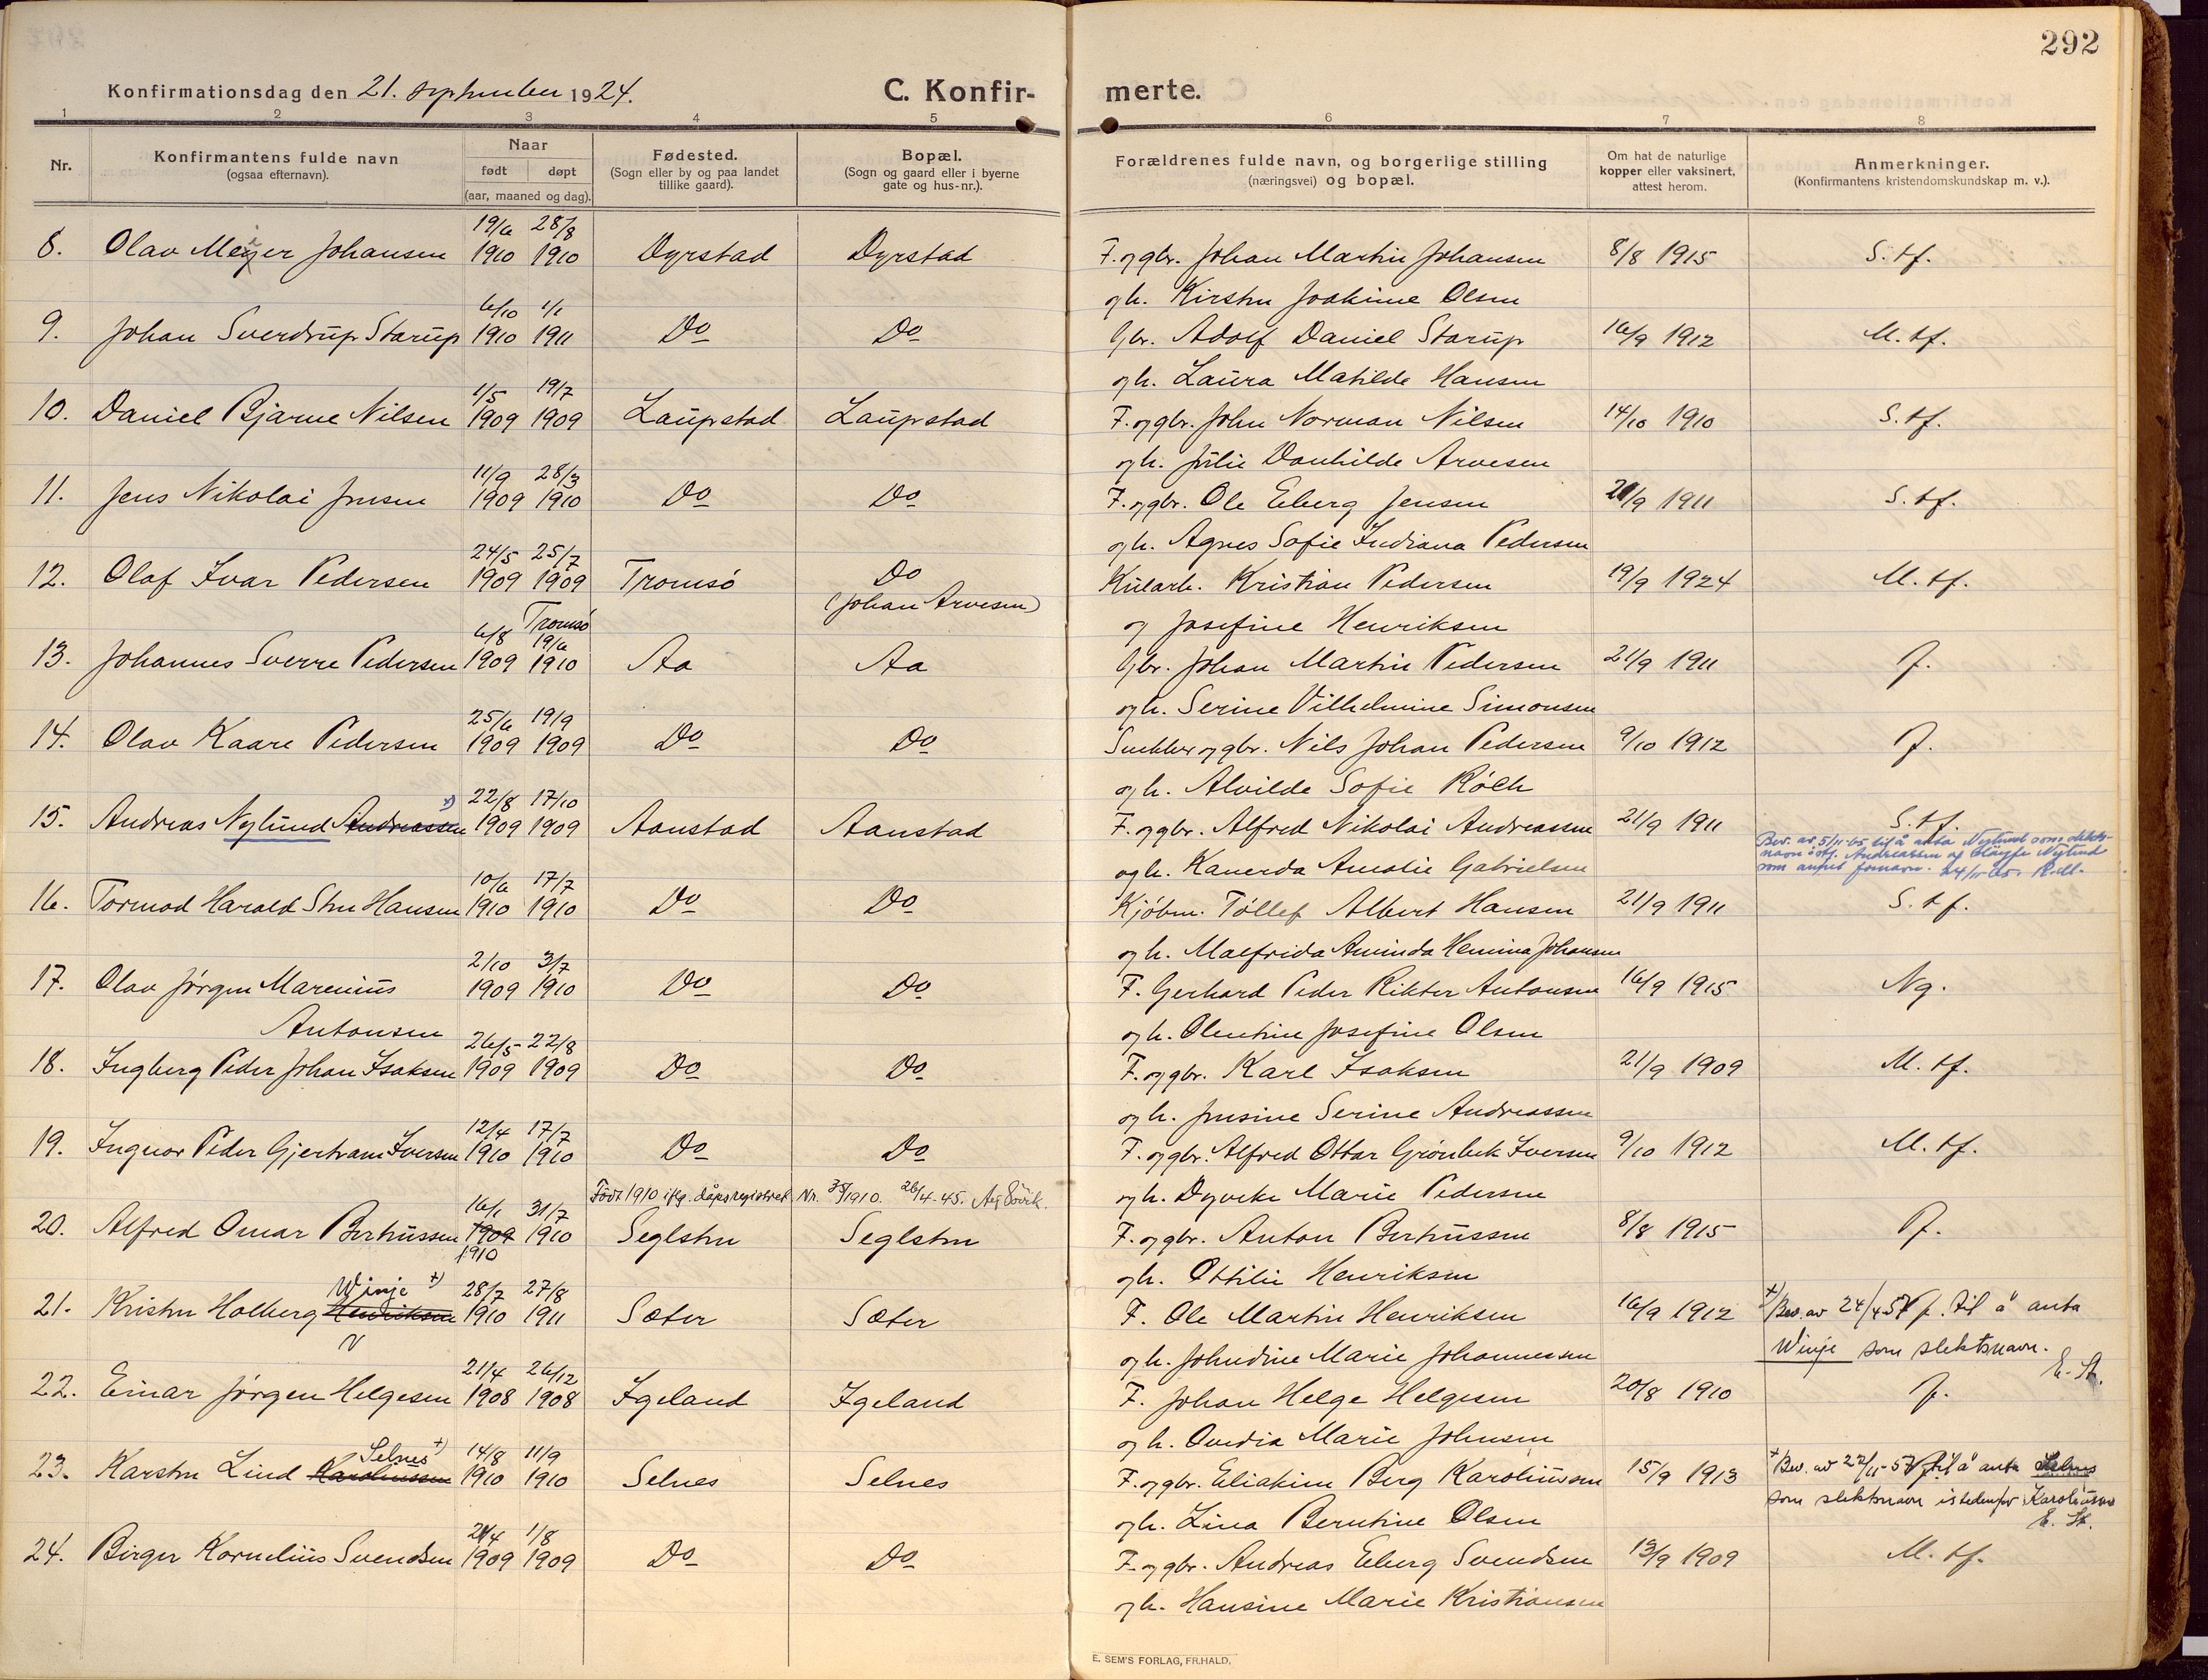 292
Konfirmationsdag den 21. september 1924.
C. Konfir-
merte.
1 2 3 4 5 6 7 8
Nr.
Konfirmantens fulde navn
(ogsaa efternavn).
Naar
født døpt
(aar, maaned og dag).
Fødested.
(Sogn eller by og paa landet
tillike gaard).
Bopæl.
(Sogn og gaard eller i byerne
gate og hus-nr.).
Forældrenes fulde navn, og borgerlige stilling
(næringsvei) og bopæl.
Om hat de naturlige
kopper eller vaksinert,
attest herom.
Anmerkninger.
(Konfirmantens kristendomskundskap m. v.).
19/6 28/8
8. Olav Meyer Johansen 1910 1910 Dyrstad Dyrstad F. og gbr. Johan Martin Johansen 8/8 1915 S. tf.
og h. Kirsten Joakime Olsen
6/10 1/1
9. Johan Sverdrup Starup 1910 1911 Do Do Gbr. Adolf Daniel Starup 16/9 1912 M. tf.
og h. Laura Matilde Hansen
1/5 19/7
10. Daniel Bjarne Nilsen 1909 1909 Laupstad Laupstad F. og gbr. John Norman Nilsen 14/10 1910 S. tf.
og h. Julie Danhilde Arvesen
11/9 28/3
11. Jens Nikolai Jensen 1909 1910 Do Do F. og gbr. Ole Eberg Jensen 21/9 1911 S. tf.
og h. Agnes Sofie Indiana Pedersen
24/5 25/7
12. Olaf Ivar Pedersen 1909 1909 Tromsö Do Kularb. Kristian Pedersen 19/9 1924 M. tf.
(Johan Arvesen)
Tromsö
og Josefine Henriksen
6/8 19/6
13. Johannes Sverre Pedersen 1909 1910 Aa Aa Gbr. Johan Martin Pedersen 21/9 1911 J.
og h. Serine Vilhelmine Simonsen
25/6 19/9
14. Olav Kaare Pedersen 1909 1909 Do Do Snekker og gbr. Nils Johan Pedersen 9/10 1912 J.
og h. Alvilde Sofie Röch
x) 22/8 17/10
15. Andreas Nylund Andreassen 1909 1909 Aanstad Aanstad F. og gbr. Alfred Nikolai Andreassen 21/9 1911 S. tf.
Bev. av 5/11-65 til å anta Nylund som slekts-
navn istf. Andreassen og sløyfe Nylund
som annet fornavn. 24/11-65.
og h. Kanerda Amalie Gabrielsen
10/6 17/7
16. Tormod Harald Sten Hansen 1910 1910 Do Do Kjöbm. Töllef Albert Hansen 21/9 1911 S. tf.
og h. Malfrida Aminda Hemina Johansen
2/10 3/7
17. Olav Jörgen Marenius 1909 1910 Do Do F. Gerhard Peder Rikter Antonsen 16/9 1915 Ng.
Antonsen
og h. Olentine Josefine Olsen
26/5 22/8
18. Ingberg Peder Johan Isaksen 1909 1909 Do Do F. og gbr. Karl Isaksen 21/9 1909 M. tf.
og h. Jensine Serine Andreassen
12/4 17/7
19. Ingvor Peder Gjertram Iversen 1910 1910 Do Do F. og gbr. Alfred Ottar Grönbek Iversen 9/10 1912 M. tf.
Födt 1910 iflg. dåpsregistret Nr. 38/1910. 26/4-45.
og h. Dyveke Marie Pedersen
16/1 31/7
20. Alfred Omar Berthussen 1909 1910 Seglsten Seglsten F. og gbr. Anton Berthussen 8/8 1915 J.
1910
og h. Ottilie Henriksen
Winje +) 28/7 27/8
21. Kristen Holberg Henriksen 1910 1911 Sæter Sæter F. Ole Martin Henriksen 16/9 1912
+) Bev. av 24/4 57 f. til å anta
Winje som slektsnavn.
E. St.
og h. Johndine Marie Johannessen
21/4 26/12
22. Einar Jörgen Helgesen 1908 1908 Igeland Igeland F. Johan Helge Helgesen 20/8 1910 J.
og h. Ovedia Marie Johnsen
Selnes +) 14/8 11/9
23. Karsten Lind Karoliussen 1910 1910 Selnes Selnes F. og gbr. Eliakim Berg Karoliussen 15/9 1913
+) Bev. av 22/11-57 f. til å anta Selnes
som slektsnavn istedenfor Karoliussen
E. St.
og h. Lina Berntine Olsen
21/4 1/8
24. Birger Kornelius Svendsen 1909 1909 Do Do F. og gbr. Andreas Eberg Svendsen 13/9 1909 M. tf.
og h. Hansine Marie Kristiansen
E. SEM'S FORLAG, FR.HALD.